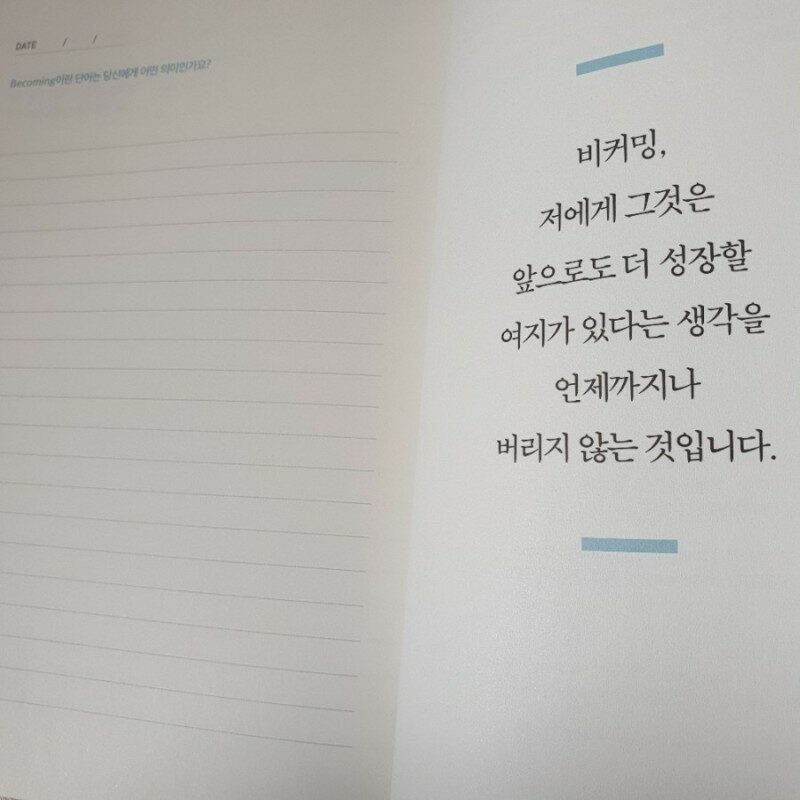 DATE / /
Becoming이란 단어는 당신에게 어떤 의미인가요?
비커밍,
저에게 그것은
앞으로도 더 성장할
여지가 있다는 생각을
언제까지나
버리지 않는 것입니다.